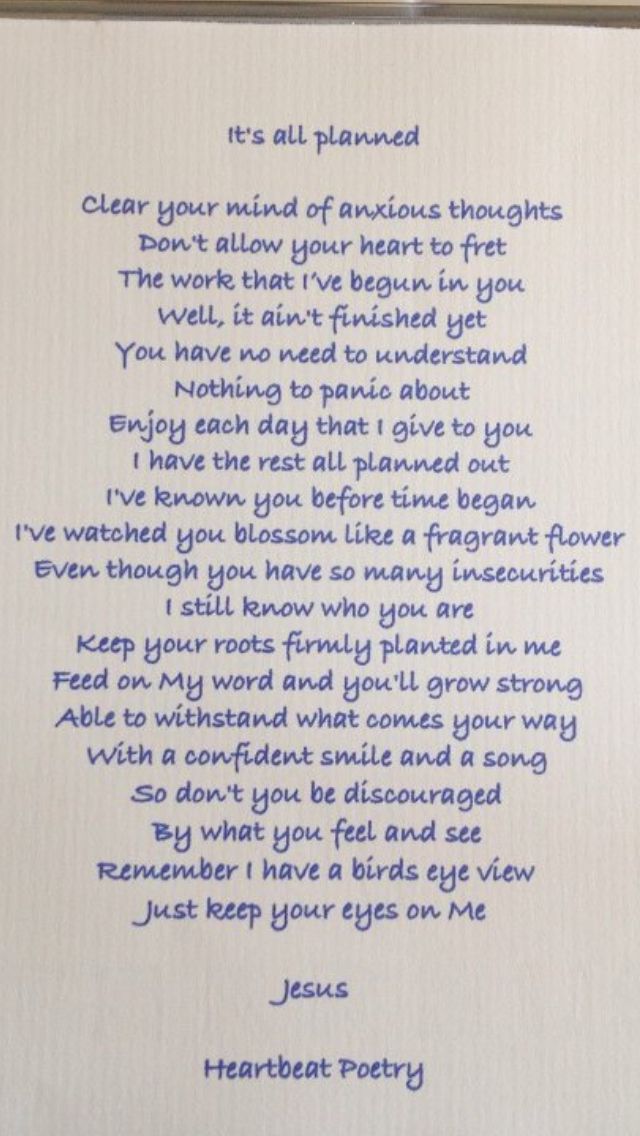 It's all planned
Clear your mind of anxious thoughts
Don't allow your heart to fret
The work that I've begun in you
Well, it ain't finished yet
You have no need to understand
Nothing to panic about
Enjoy each day that I give to you
I have the rest all planned out
I've known you before time began
I've watched you blossom like a fragrant flower
Even though you have so many insecurities
I still know who you are
Keep your roots firmly planted in me
Feed on My word and you'll grow strong
Able to withstand what comes your way
With a confident smile and a song
So don't you be discouraged
By what you feel and see
Remember I have a birds eye view
Just keep your eyes on Me
Jesus
Heartbeat Poetry